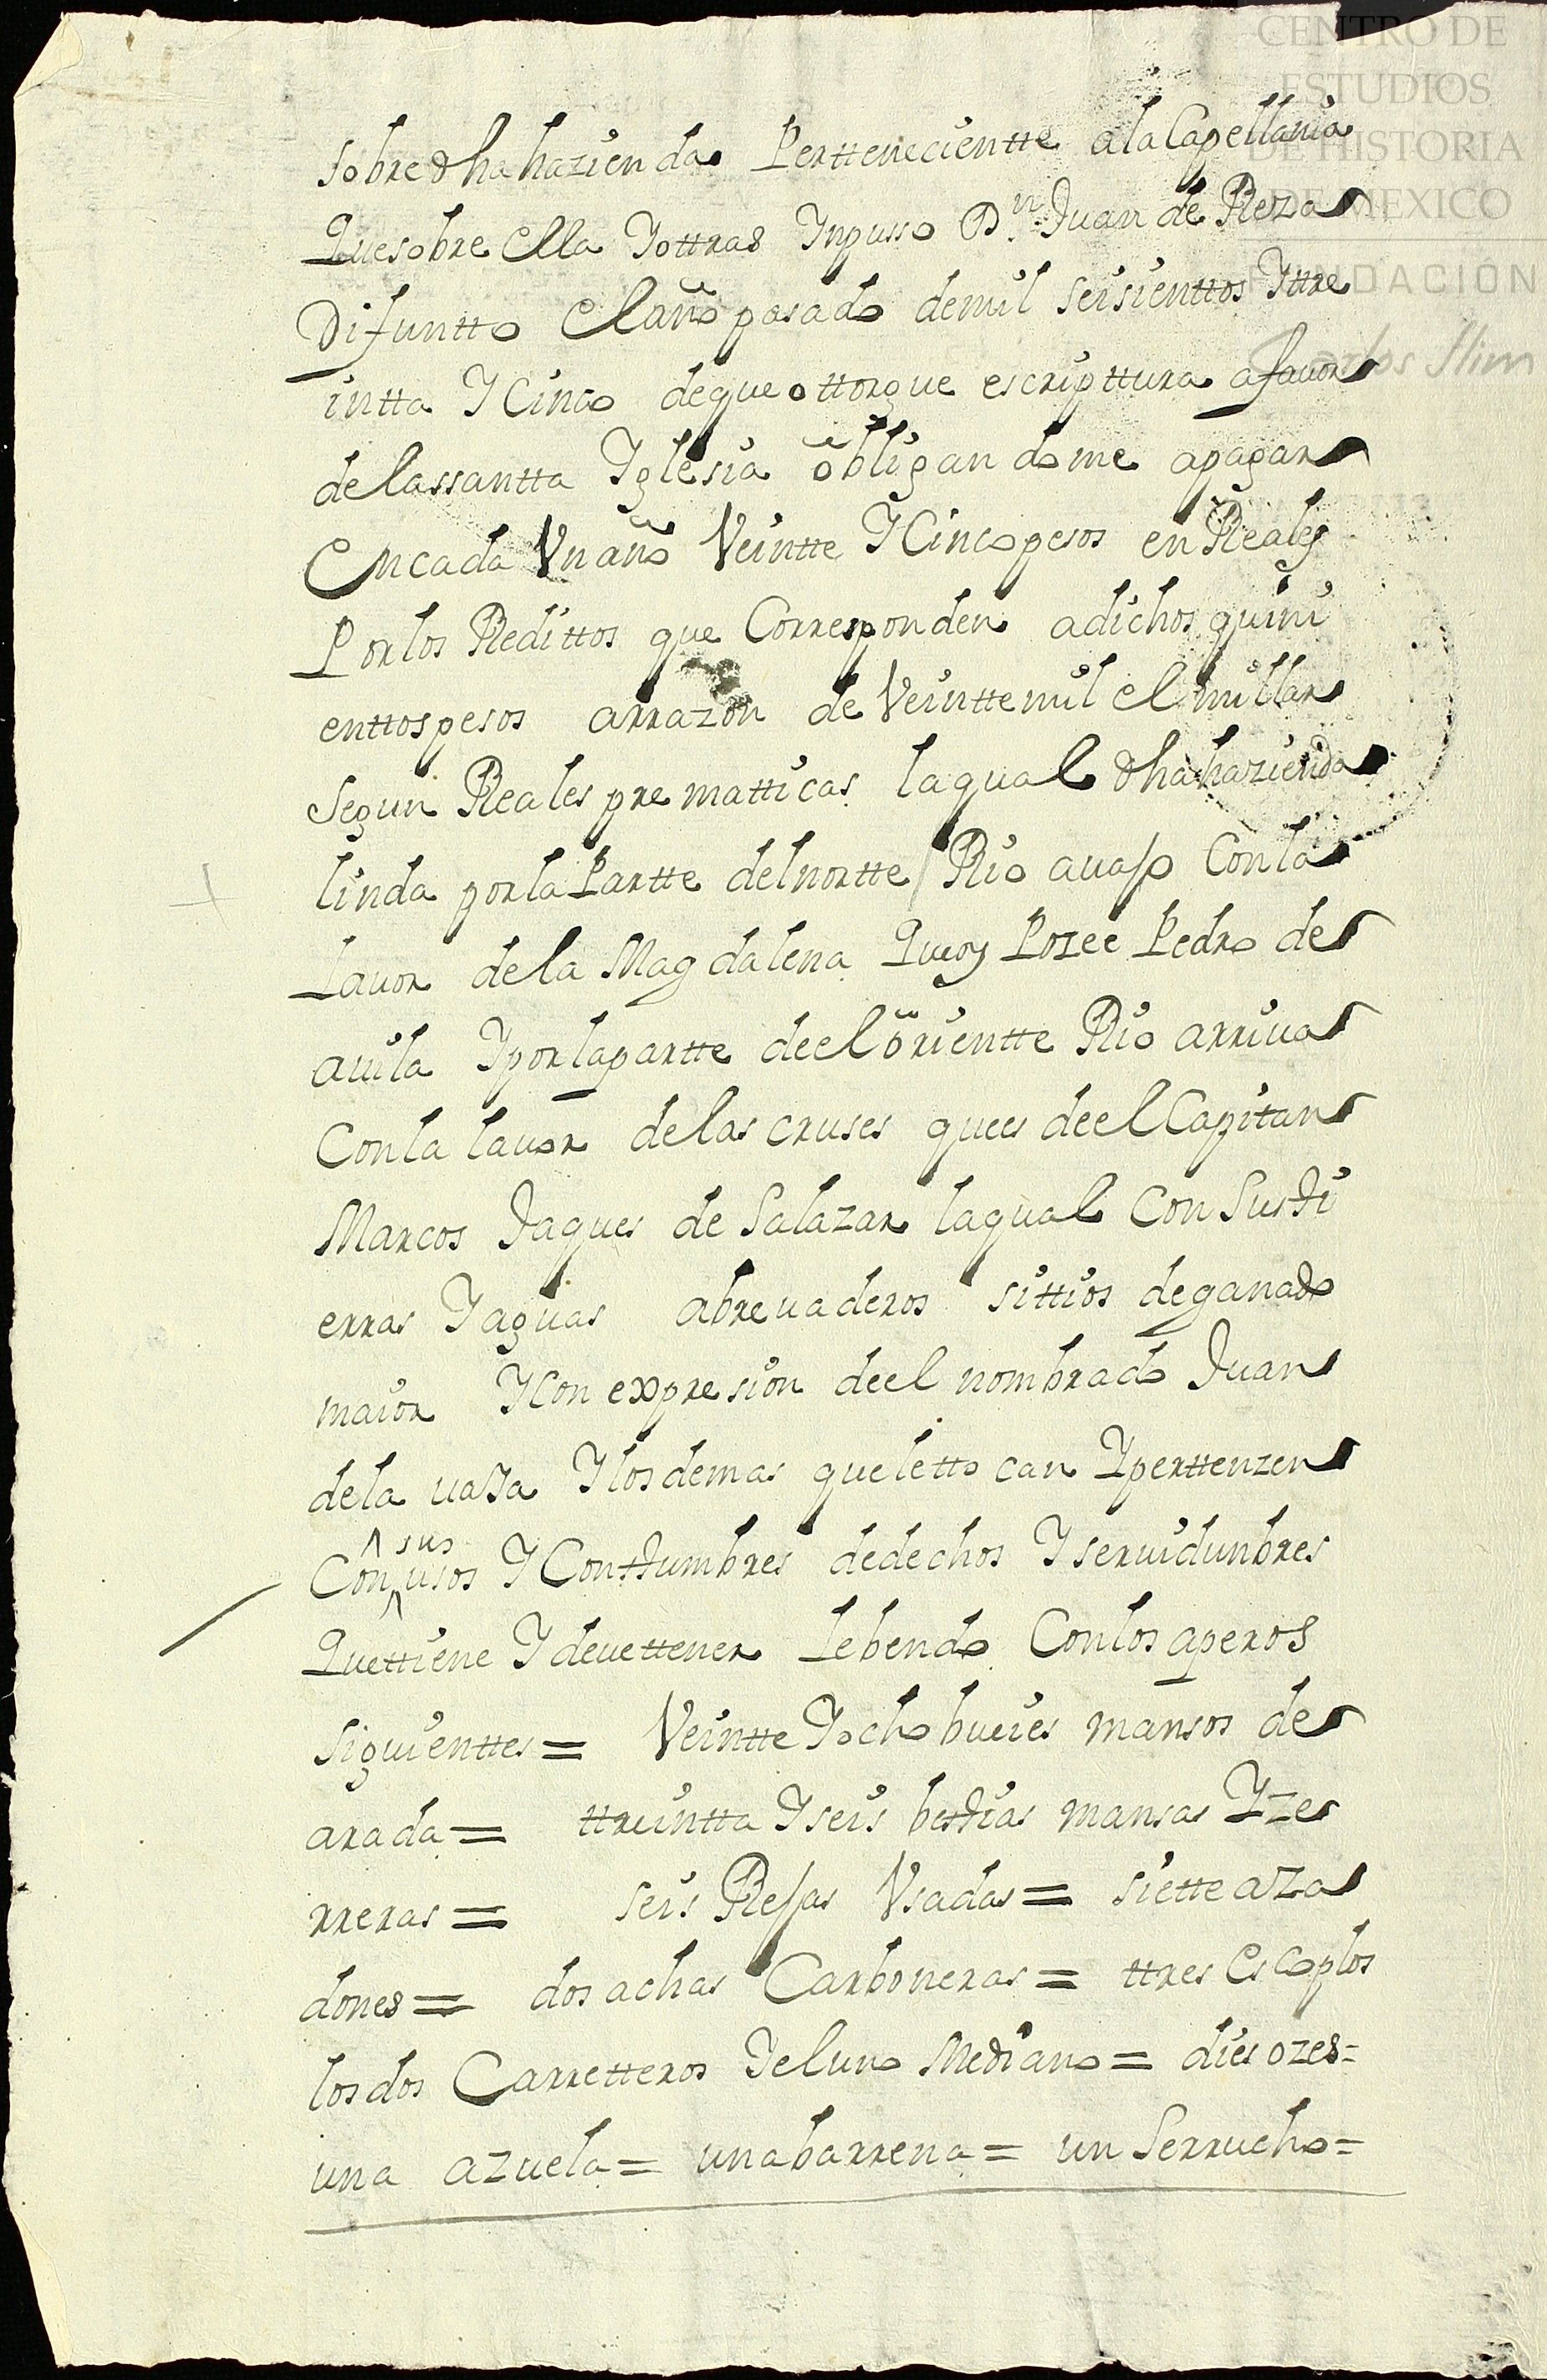 CENTRO DE
ESTUDIOS
DE HISTORIA
DE MEXICO
FUNDACIÓN
Carlos Slim
sobre dha hazienda Pertteneciente ala Capellania
Quesobre ella Yottras Ynpusso Dn. Juan de Reza
Difuntto el año pasado demil seisienttos Yttre
intta Y Cinco deque ottorgue escripttura afauor
delassantta Yglesia obligandome apagar
en cada Vn año Veintte Y Cinco pesos en Reales
Por los Redittos que Corresponden adichos quini
enttos pesos arrazon de Veinttemil el millar
segun Reales prematticas laqual dha hazienda
linda porla Partte delnortte Rio auajo Con la
lauor dela Magdalena Queoy Pozee Pedro de
auila Yporlapartte deel orientte Rio arriua
Conla lauor delas cruses quees deel Capitan
Marcos Jaques de Salazar laqual Con susti
erras Yaguas abreuaderos sittios deganado
maior Y Con expresion deel nombrado Juan
dela uaza Ylosdemas queletto can Yperttenzen
Con sus usos Y Consttumbres dedechos Yseruidunbres
Quettiene Ydeuettener lebendo Conlos aperos
siguienttes = Veintte Yocho bueies mansos de
arada = ttreintta Yseis besttias mansas Yze
rreras = seis Rejas Vsadas = siette aza
dones = dos achas Carboneras = ttres escoplos
los dos Carretteros Yeluno Mediano = dies ozes =
una azuela = unabarrena = un Serrucho =